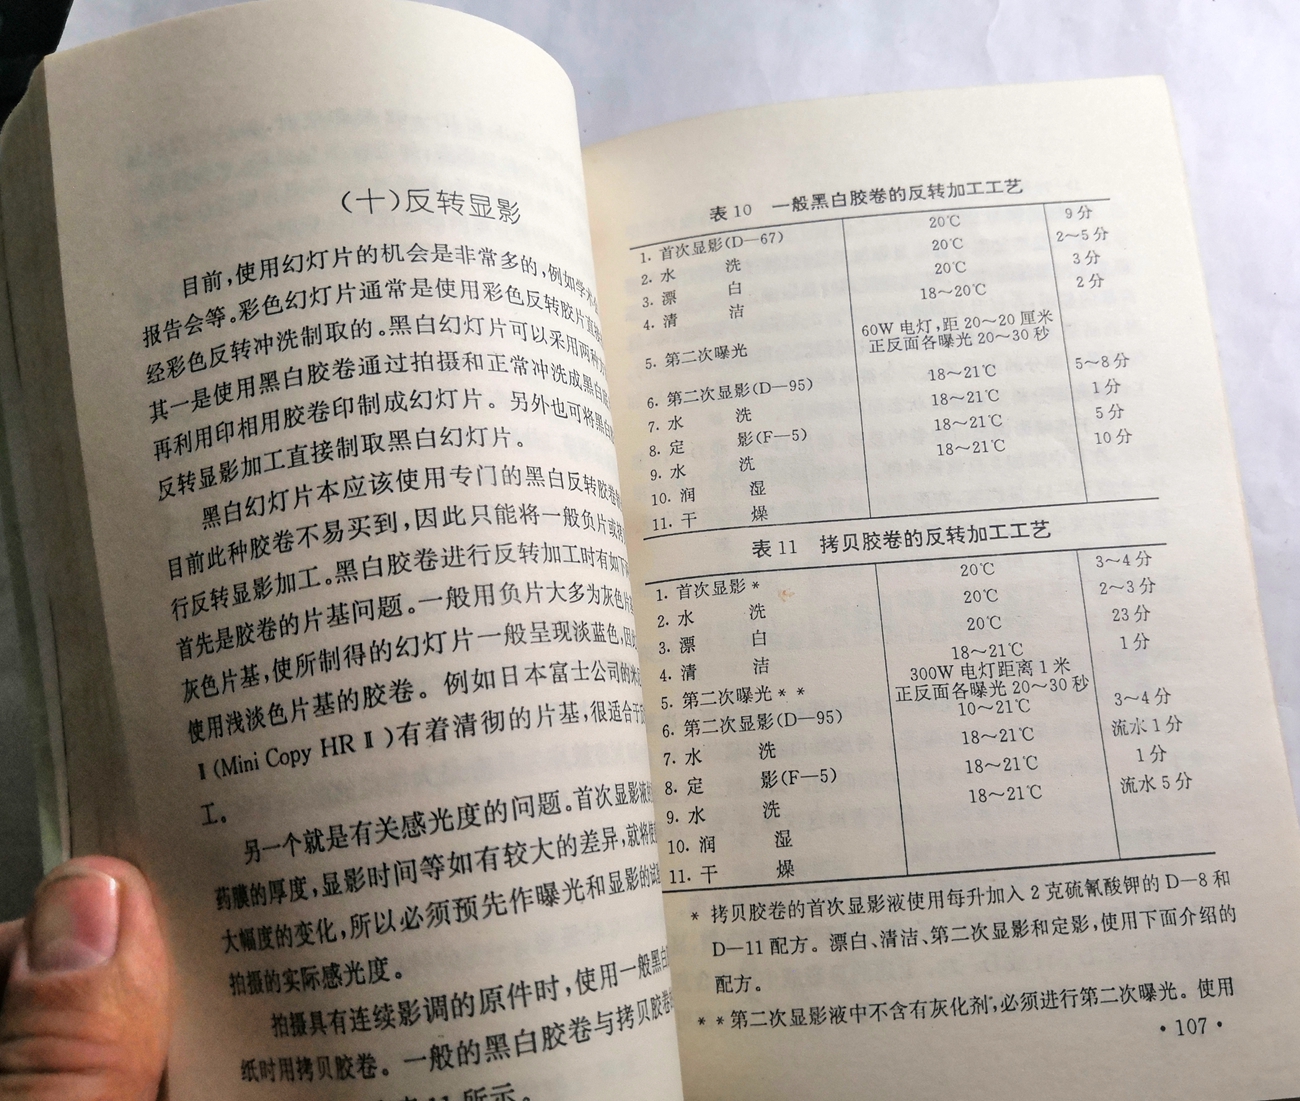 (十)反转显影
目前,使用幻灯片的机会是非常多的,例如学术
报告会等。彩色幻灯片通常是使用彩色反转胶片直接
经彩色反转冲洗制取的。黑白幻灯片可以采用两种方
其一是使用黑白胶卷通过拍摄和正常冲洗成黑白
再利用印相用胶卷印制成幻灯片。另外也可将黑白
反转显影加工直接制取黑白幻灯片。
黑白幻灯片本应该使用专门的黑白反转胶卷
目前此种胶卷不易买到,因此只能将一般负片或拷
行反转显影加工。黑白胶卷进行反转加工时有如下
首先是胶卷的片基问题。一般用负片大多为灰色片
灰色片基,使所制得的幻灯片一般呈现淡蓝色,因
使用浅淡色片基的胶卷。例如日本富士公司的
Ⅱ(Mini Copy HR Ⅱ)有着清彻的片基,很适合于
工。
另一个就是有关感光度的问题。首次显影液
药膜的厚度,显影时间等如有较大的差异,就将使
大幅度的变化,所以必须预先作曝光和显影的试
拍摄的实际感光度。
拍摄具有连续影调的原件时,使用一般黑白
纸时用拷贝胶卷。一般的黑白胶卷与拷贝胶卷
11所示。
表10 一般黑白胶卷的反转加工工艺
1. 首次显影(D—67) 20℃ 9分
2. 水 洗 20℃ 2~5分
3. 漂 白 20℃ 3分
4. 清 洁 18~20℃ 2分
5. 第二次曝光 60W电灯,距20~20厘米
正反面各曝光20~30秒
6. 第二次显影(D—95) 18~21℃ 5~8分
7. 水 洗 18~21℃ 1分
8. 定 影(F—5) 18~21℃ 5分
9. 水 洗 18~21℃ 10分
10. 润 湿
11. 干 燥
表11 拷贝胶卷的反转加工工艺
1. 首次显影* 20℃ 3~4分
2. 水 洗 20℃ 2~3分
3. 漂 白 20℃ 23分
4. 清 洁 18~21℃ 1分
5. 第二次曝光** 300W电灯距离1米
正反面各曝光20~30秒
6. 第二次显影(D—95) 10~21℃ 3~4分
7. 水 洗 18~21℃ 流水1分
8. 定 影(F—5) 18~21℃ 1分
9. 水 洗 18~21℃ 流水5分
10. 润 湿
11. 干 燥
* 拷贝胶卷的首次显影液使用每升加入2克硫氰酸钾的D—8和
D—11配方。漂白、清洁、第二次显影和定影,使用下面介绍的
配方。
** 第二次显影液中不含有灰化剂,必须进行第二次曝光。使用
·107·